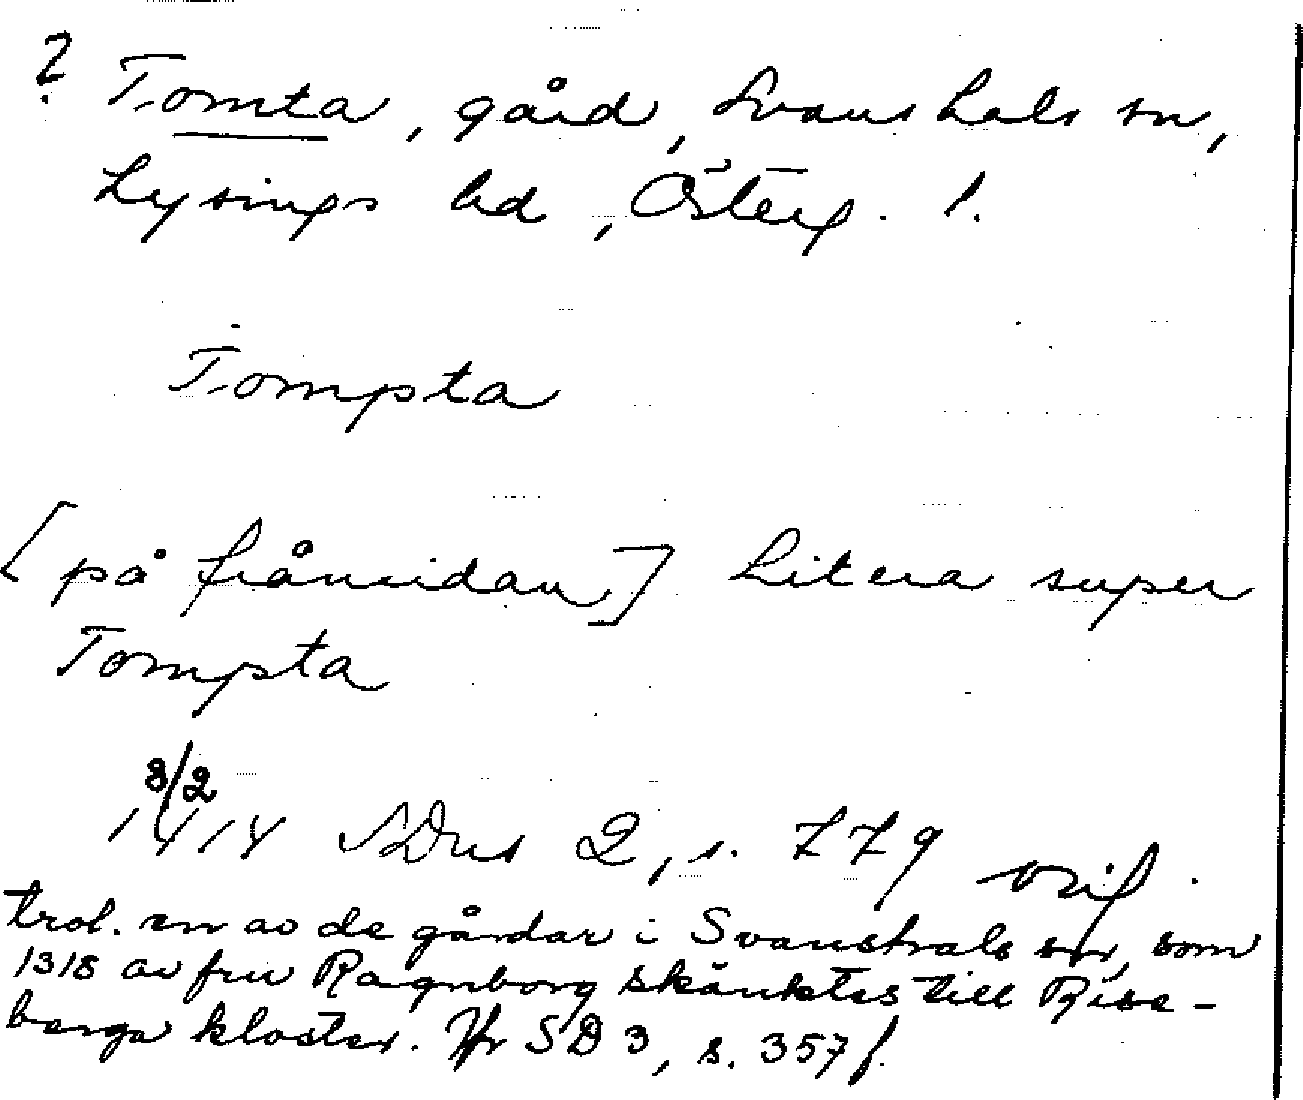 ? Tomta, gård, Svanshals sn,
Lysings hd, Österg. l.
Tompta
[på frånsidan] Litera super
Tompta
3/2
1414 SDns 2, s. 779 orig.
trol. en av de gårdar i Svanshals sn, som
1318 av fru Ragnborg skänktes till Rise-
berga kloster. Jfr SD 3, s. 357 f.